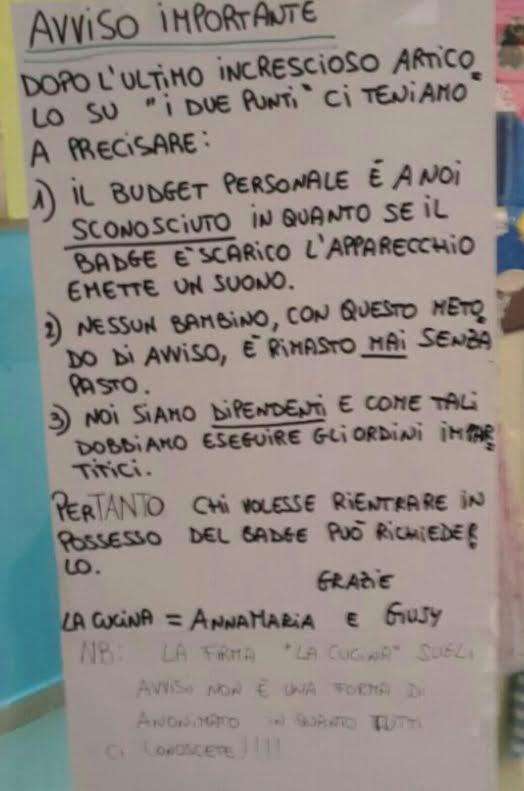 AVVISO IMPORTANTE
DOPO L'ULTIMO INCRESCIOSO ARTICO
LO SU "I DUE PUNTI" CI TENIAMO
A PRECISARE:
1) IL BUDGET PERSONALE È A NOI
SCONOSCIUTO IN QUANTO SE IL
BADGE E' SCARICO L'APPARECCHIO
EMETTE UN SUONO.
2) NESSUN BAMBINO, CON QUESTO METO
DO DI AVVISO, È RIMASTO MAI SENZA
PASTO.
3) NOI SIAMO DIPENDENTI E COME TALI
DOBBIAMO ESEGUIRE GLI ORDINI IMPAR
TITICI.
PERTANTO CHI VOLESSE RIENTRARE IN
POSSESSO DEL BADGE PUÒ RICHIEDER
LO.
GRAZIE
LA CUCINA = ANNAMARIA E GIUSY
NB: LA FIRMA "LA CUCINA" SUGLI
AVVISI NON È UNA FORMA DI
ANONIMATO IN QUANTO TUTTI
CI CONOSCETE!!!!